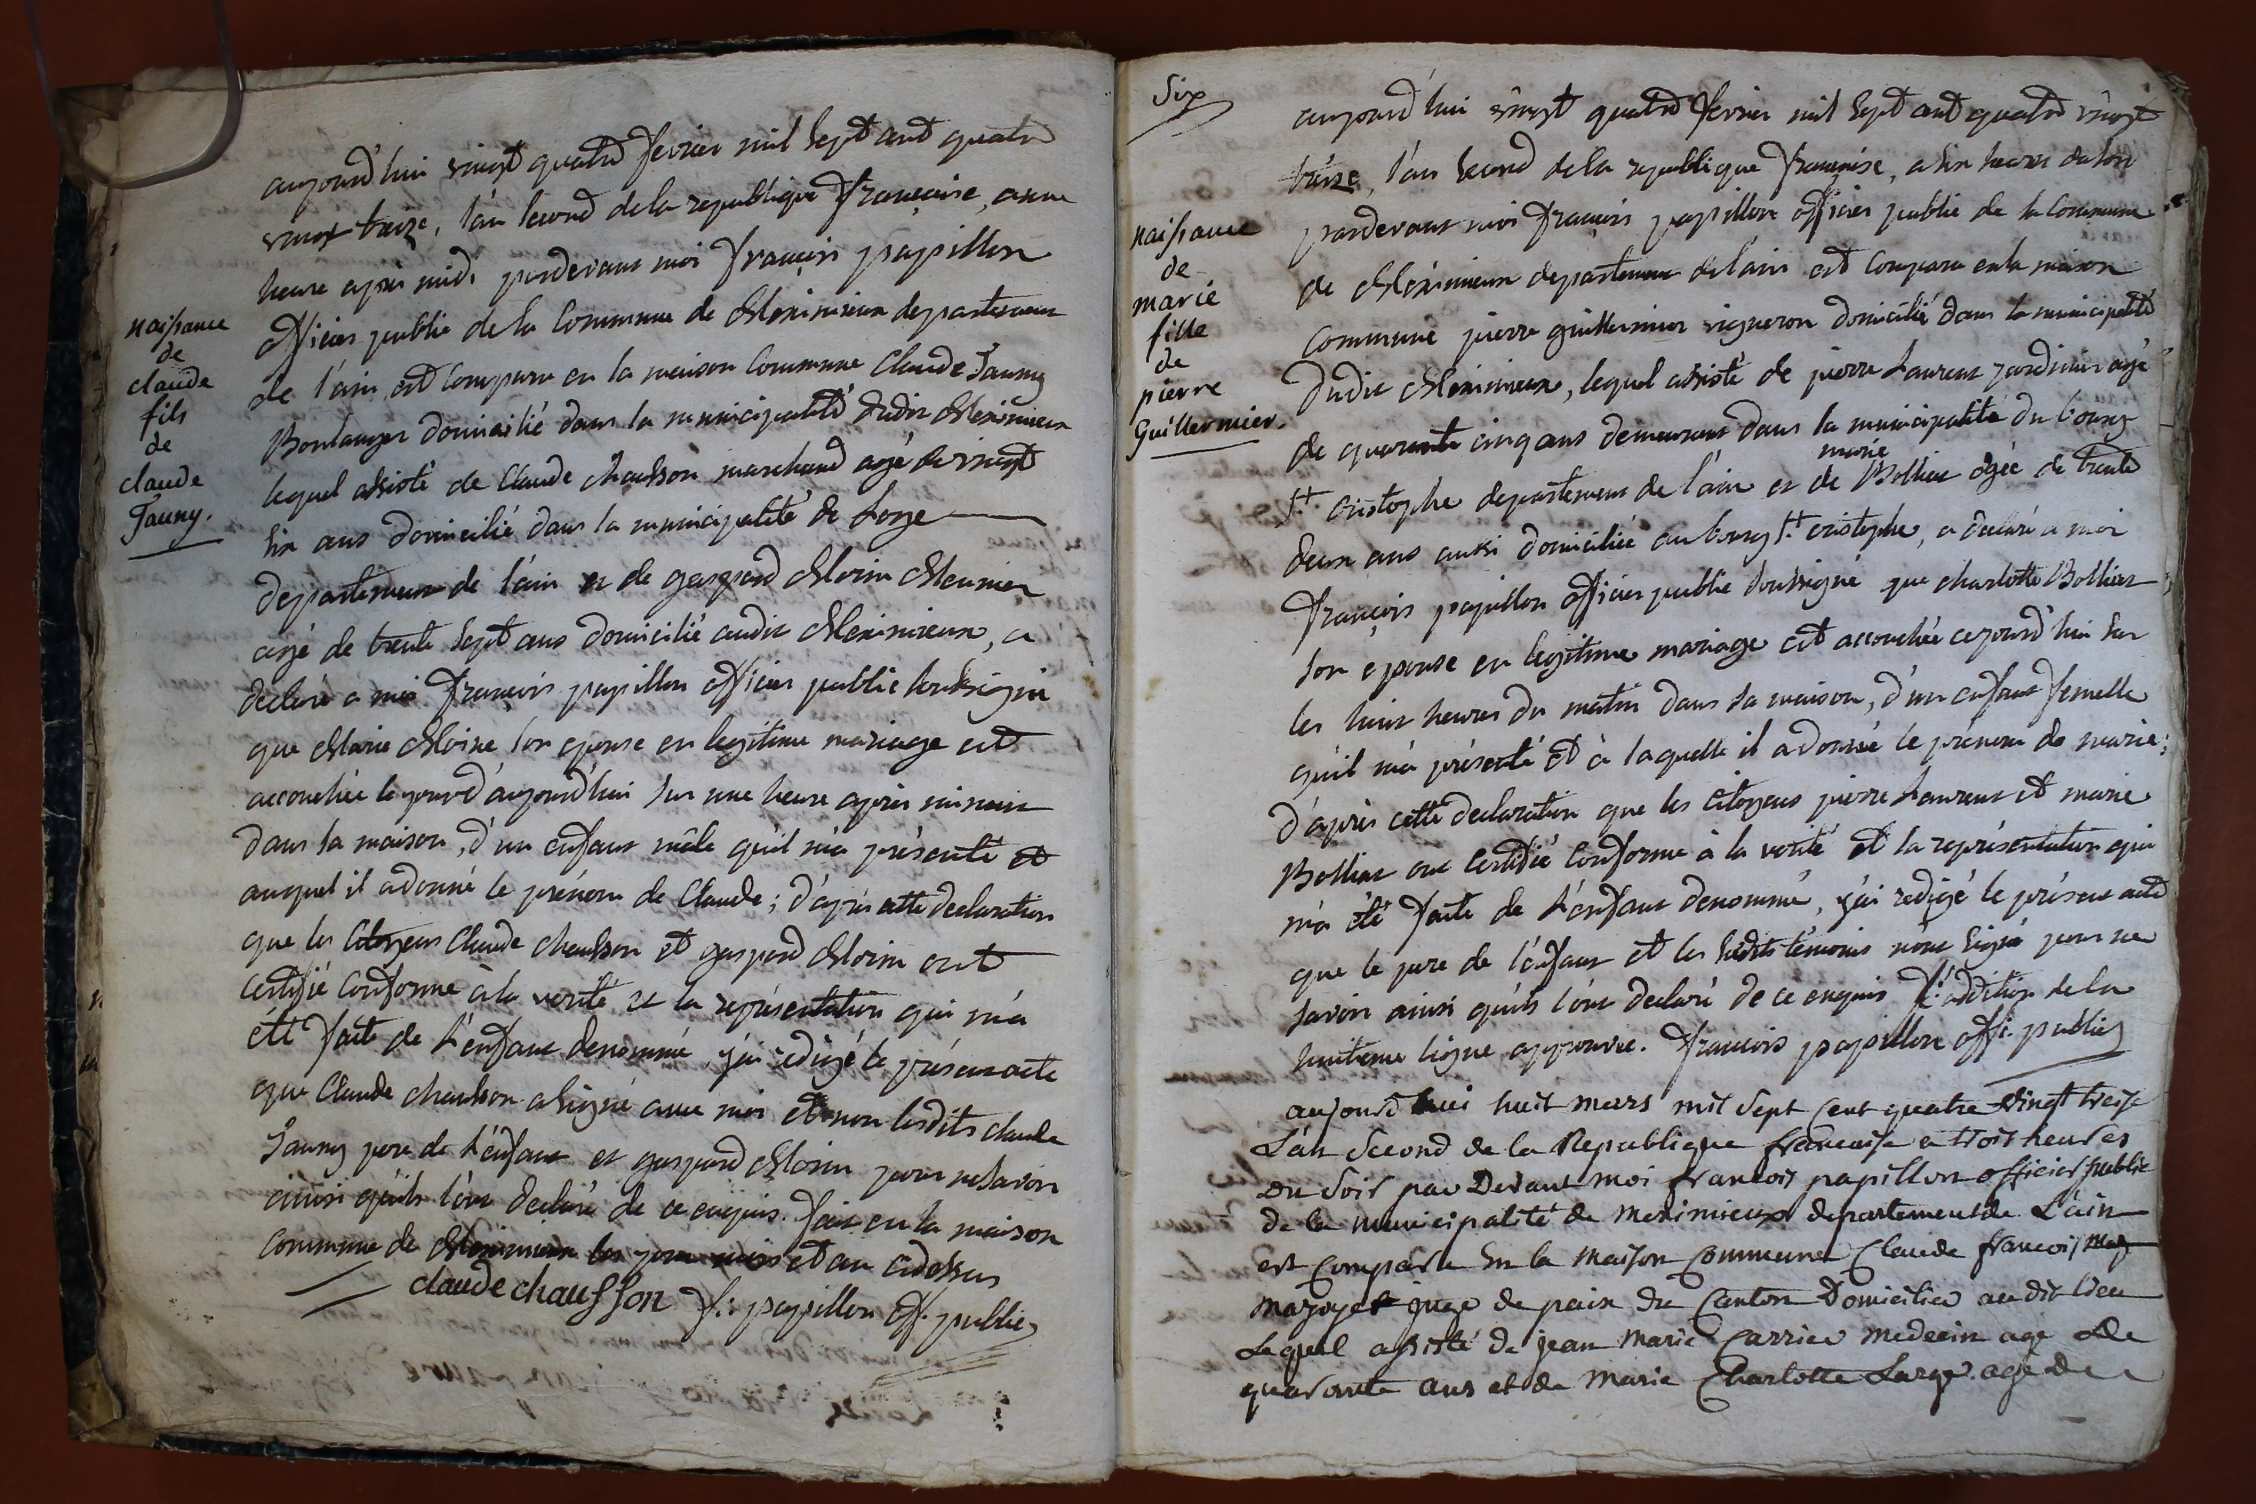 naissance
de
claude
fils
de
claude
Jauny.
aujourd'hui vingt quatre fevrier mil sept cent quatre
vingt treize, l'an second de la republique française, a une
heure après midi pardevant moi françois papillon
officier public de la Commune de Meximieux departement
de l'ain, est comparu en la maison Commune Claude Jauny
Boulanger domicilié dans la municipalité dudit Meximieux
lequel assisté de Claude chausson marchand agé de vingt
six ans domicilié dans la municipalité de Loye
departement de l'ain et de gaspard Morin Meunier
agé de trente sept ans domicilié audit Meximieux, a
declaré a moi françois papillon officier public soussigné
que Marie Moine son epouse en legitime mariage est
accouchée le jourd'aujourd'hui sur une heure après minuit
dans sa maison, d'un enfant mâle qu'il m'a présenté et
auquel il a donné le prénom de Claude; d'après cette declaration
que les Citoyens Claude chausson et gaspard Morin ont
certifié conforme à la verité et la représentation qui m'a
été faite de L'enfant denommé, j'ai redigé le présent acte
que Claude chausson a signé avec moi et non lesdits claude
Jauny pere de L'enfant et gaspard Morin pour ne savoir
ainsi qu'ils l'ont declaré de ce enquis. fait en la maison
commune de Meximieux les jour mois et an cidessus
claude chausson f: papillon off. public
Six
naissance
de
marie
fille
de
pierre
Guillermier.
aujourd'hui vingt quatre fevrier mil sept cent quatre vingt
treize, l'an second de la republique française, a six heures du soir
pardevant moi françois papillon officier public de la Commune
de Meximieux departement de l'ain est comparu en la maison
commune pierre guillermier vigneron domicilié dans la municipalité
dudit Meximieux, lequel assisté de pierre Laurent jardinier agé
de quarante cinq ans demeurant dans la municipalité du bourg
marie
St. cristophe departement de l'ain et de Bollier agée de trente
deux ans aussi domiciliée au bourg St. cristophe, a declaré a moi
françois papillon officier public soussigné que charlotte Bollier
son epouse en legitime mariage est accouchée cejourd'hui sur
les huit heures du matin dans sa maison, d'un enfant femelle
qu'il m'a présenté et à laquelle il a donné le prénom de marie;
d'après cette declaration que les citoyens pierre Laurent et marie
Bollier ont certifié conforme à la verité et la représentation qui
m'a été faite de L'enfant denommé, j'ai redigé le présent acte
que le pere de l'enfant et les susdits témoins n'ont signé pour ne
savoir ainsi qu'ils l'ont declaré de ce enquis l'addition de la
huitieme ligne approuvée. françois papillon offi. public
aujourd'hui huit mars mil sept cent quatre vingt treise
L'an second de la Republique francaise a trois heures
du soir par Devant moi francois papillon officier public
de la municipalité de meximieux departement de L'ain
est comparu en la maison commune Claude francois maz
mazoyer juge de paix du canton Domicilié audit lieu
Lequel assisté de jean marie carrier medecin agé De
quarante ans et de marie Charlotte Large agé De